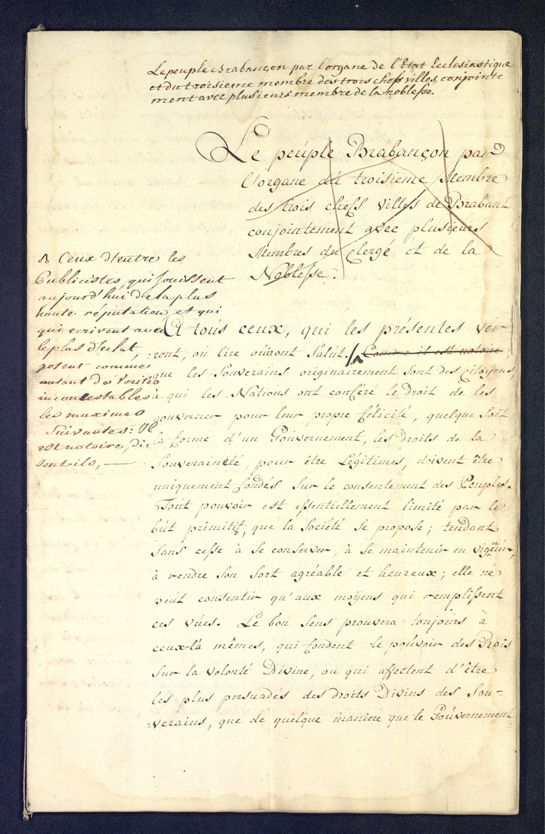 Le peuple Brabançon par l'organe de l'Etat Ecclesiastique
et du troisieme membre des trois chefs villes, conjointe
ment avec plusieurs membre de la noblesse.
Le peúple Brabançon par
l'organe du troisieme Membre
des trois chefs villes de Brabant
conjointement avec plusieurs
Membres du Clergé et de la
Noblesse.
Ceux d'entre les
Publicistes, qui jouissent
aujourd'hui de la plus
haute réputation et qui
qui ecrivent avec
le plus d'eclat,
posent commes
autant de verités
incontestables
les maximes
suivantes: Il
est notoire, di-
sent-ils, —
A tous ceux, qui les présentes ver-
-ront, ou lire oúiront Salút. Comme il est notoire,
que les Souverains originairement sont des citoyens,
à qui les Nations ont conféré le Droit de les
gouverner pour leur propre félicité, quelque soit
la forme d'un Goúvernement, les droits de la
Souveraineté, pour être Légitimes, doivent être
uniquement fondés sur le consentement des Peuples.
Tout pouvoir est essentiellement limité par le
bút primitif, que la Société se propose; tendant
sans cesse à se conserver, à se maintenir en vigúeur,
à rendre son sort agréable et heureux; elle ne
peut consentir qu'aux moÿens qui remplissent
ces vúes. Le bon sens prouvera toujours à
ceux-là mêmes, qui fondent le poúvoir des Rois
sur la volonté Divine, ou qui affectent d'être
les plus persuadés des droits Divins des Sou-
-verains, que de quelque maniere que le Goúvernement